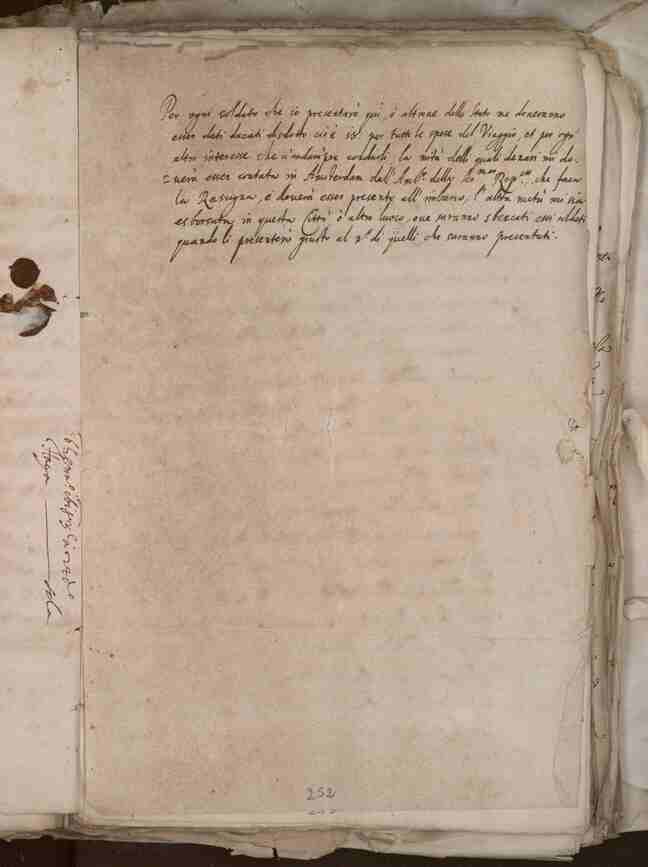 Per ogni soldato che io presentarò qui, ò altroue dello stato me doueranno
esser dati ducati disdotto cioè 18. per tutte le spese del Viaggio, et per ogni
altro interesse che condurli, la mità delli quali denari mi do-
uerà esser contata in Amsterdam dall' Amb.r della Ser.ma Rep.ca, che farà
la Rassegna, e douerà esser presente all' imbarco, l' altra metà mi sia
esborsata in questa Città ò altro luoco, oue saranno sbarcati essi soldati
quando li presenterò giusto al n.o di quelli che saranno presentati.
252